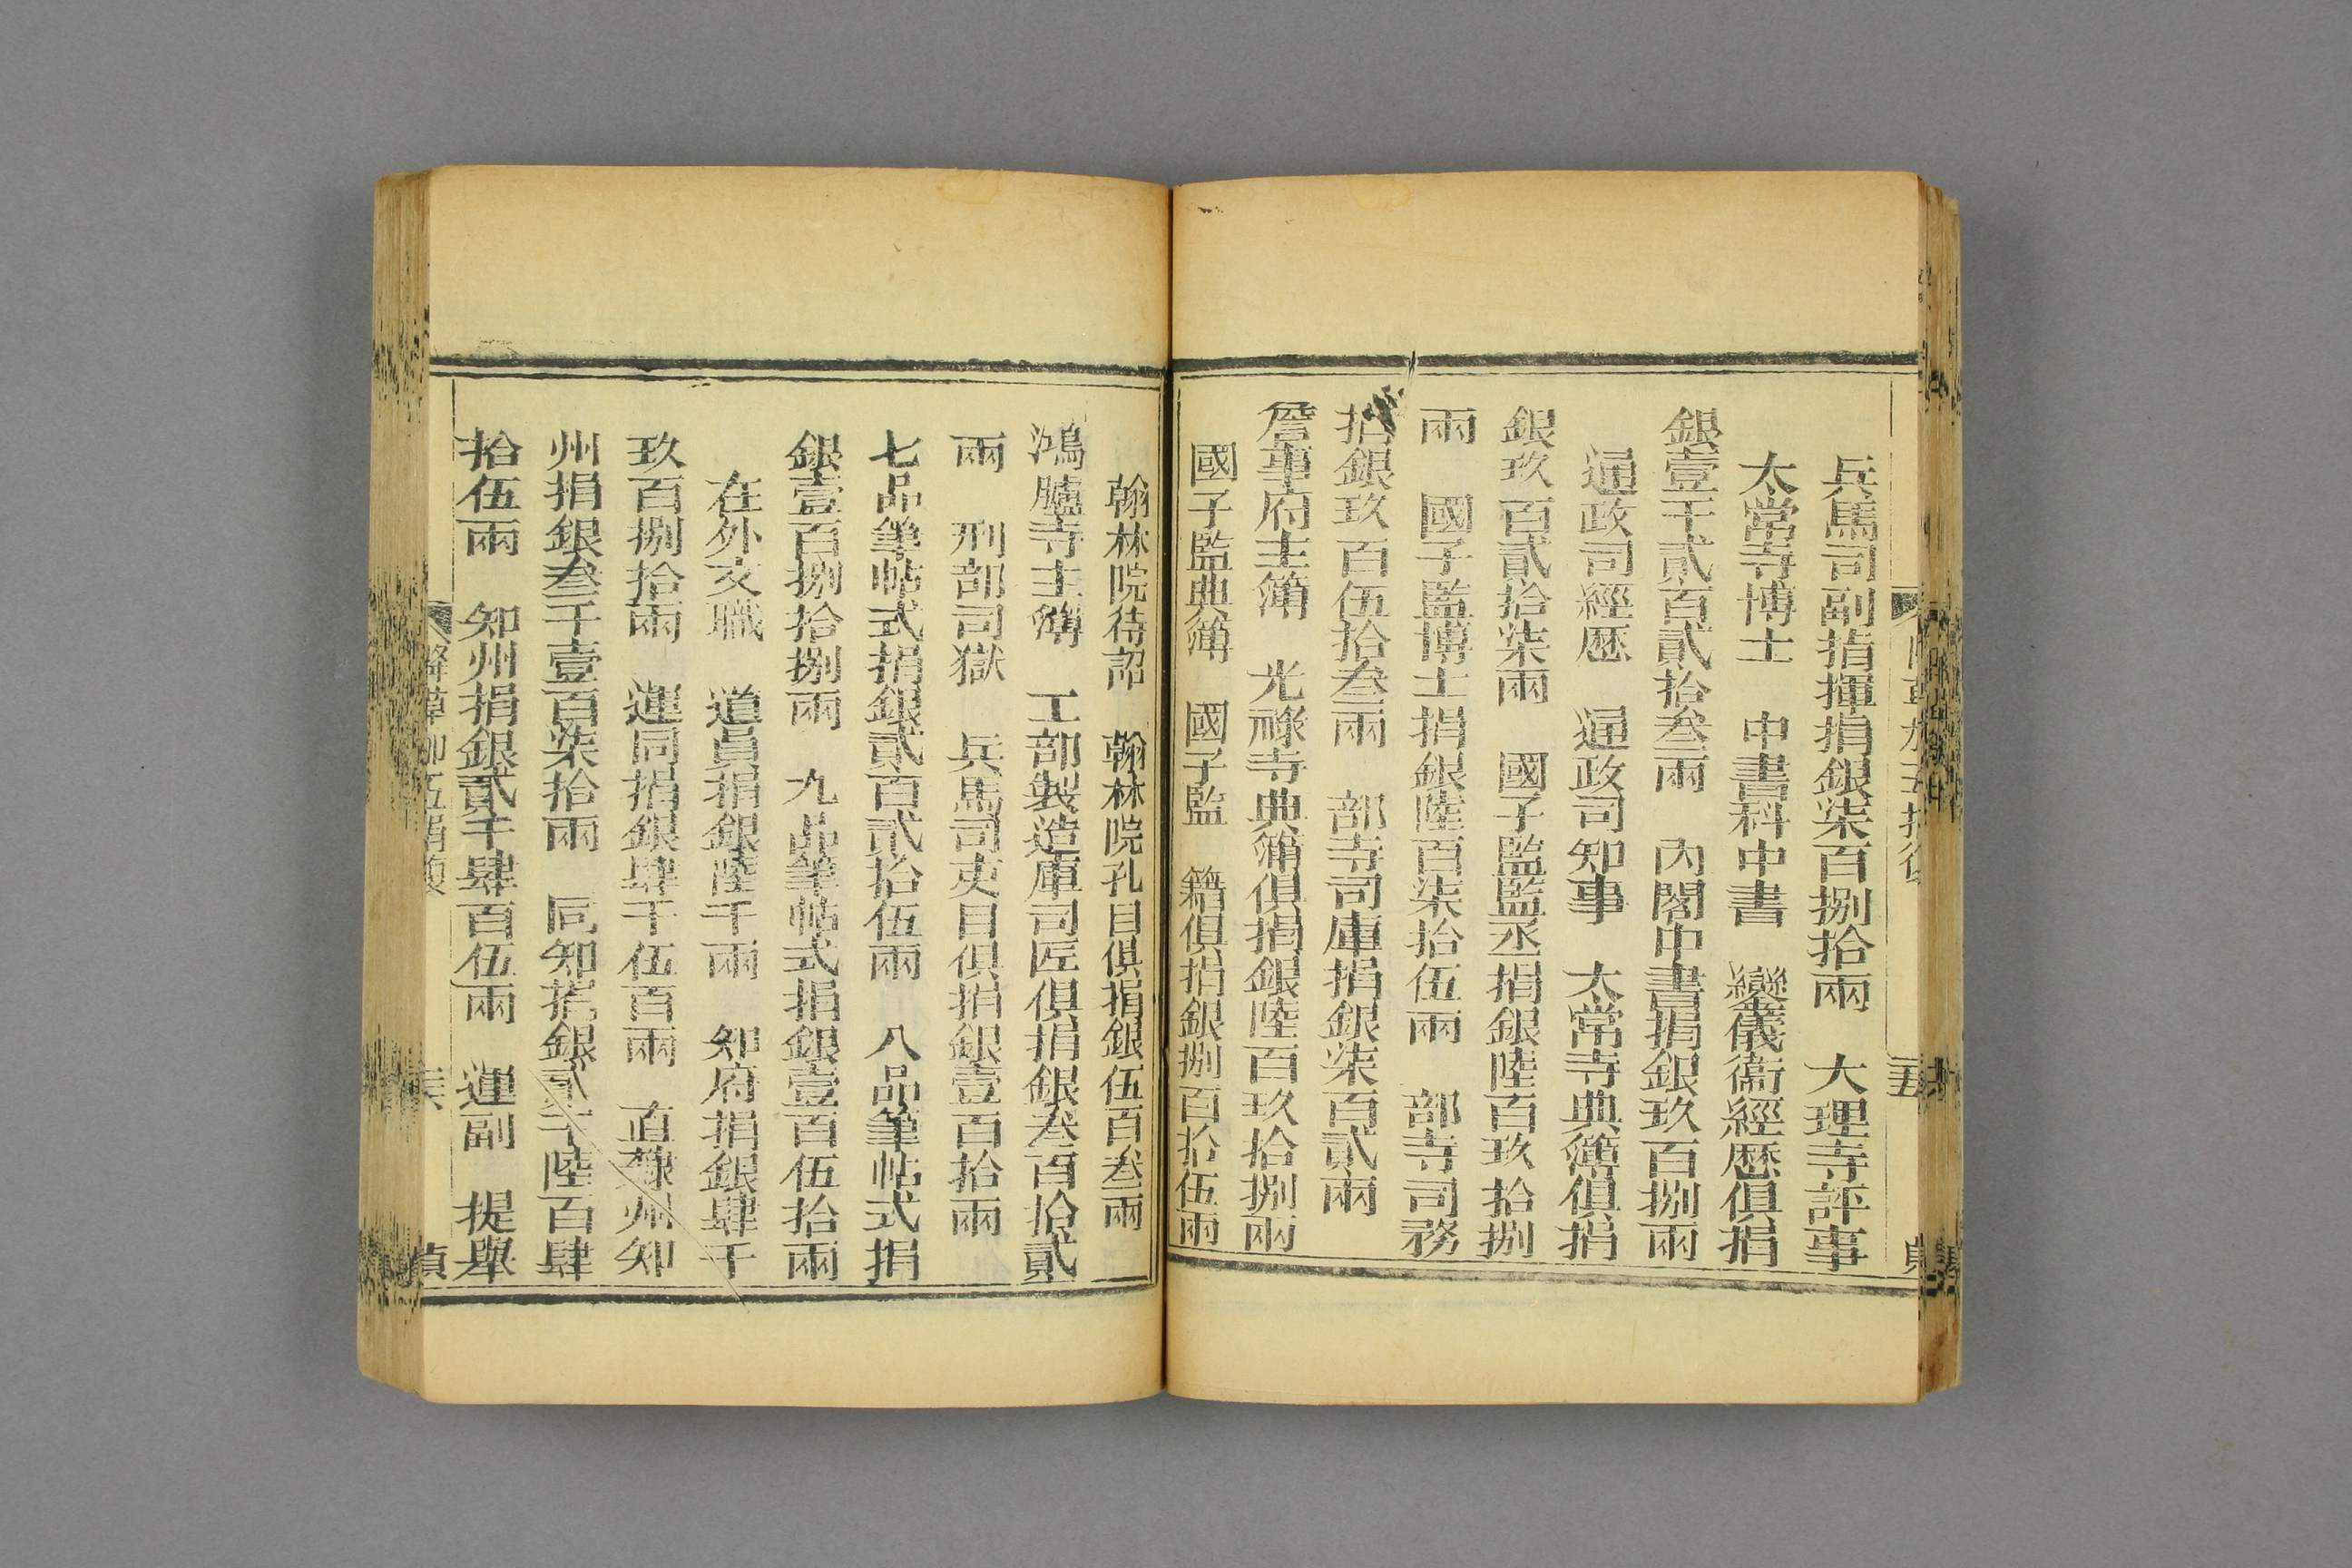 兵馬司副指揮捐銀柒百捌拾兩　大理寺評事
太常寺博士　中書科中書　鑾儀衞經歷俱捐
銀壹千貳百貳拾叁兩　內閣中書捐銀玖百捌兩
通政司經歷　通政司知事　太常寺典簿俱捐
銀玖百貳拾柒兩　國子監監丞捐銀陸百玖拾捌
兩　國子監博士捐銀陸百柒拾伍兩　部寺司務
捐銀玖百伍拾叁兩　部寺司庫捐銀柒百貳兩
詹事府主簿　光祿寺典簿俱捐銀陸百玖拾捌兩
國子監典簿　國子監　籍俱捐銀捌百拾伍兩
翰林院待詔　翰林院孔目俱捐銀伍百叁兩
鴻臚寺主簿　工部製造庫司匠俱捐銀叁百拾貳
兩　刑部司獄　兵馬司吏目俱捐銀壹百拾兩
七品筆帖式捐銀貳百貳拾伍兩　八品筆帖式捐
銀壹百捌拾捌兩　九品筆帖式捐銀壹百伍拾兩
在外文職　道員捐銀陸千兩　知府捐銀肆千
玖百捌拾兩　運同捐銀肆千伍百兩　直隸州知
州捐銀叁千壹百柒拾兩　同知捐銀貳千陸百肆
拾伍兩　知州捐銀貳千肆百伍兩　運副　提舉